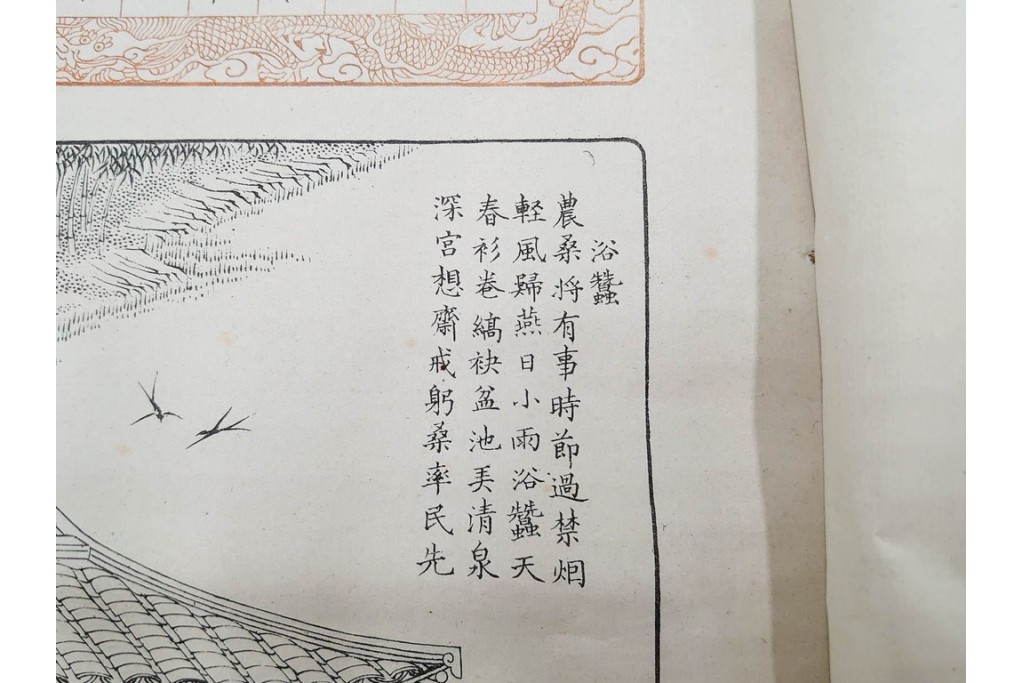 浴蠶
農桑将有事時節過禁烟
軽風歸燕日小雨浴蠶天
春衫卷縞袂盆池弄清泉
深宮想齋戒躬桑率民先